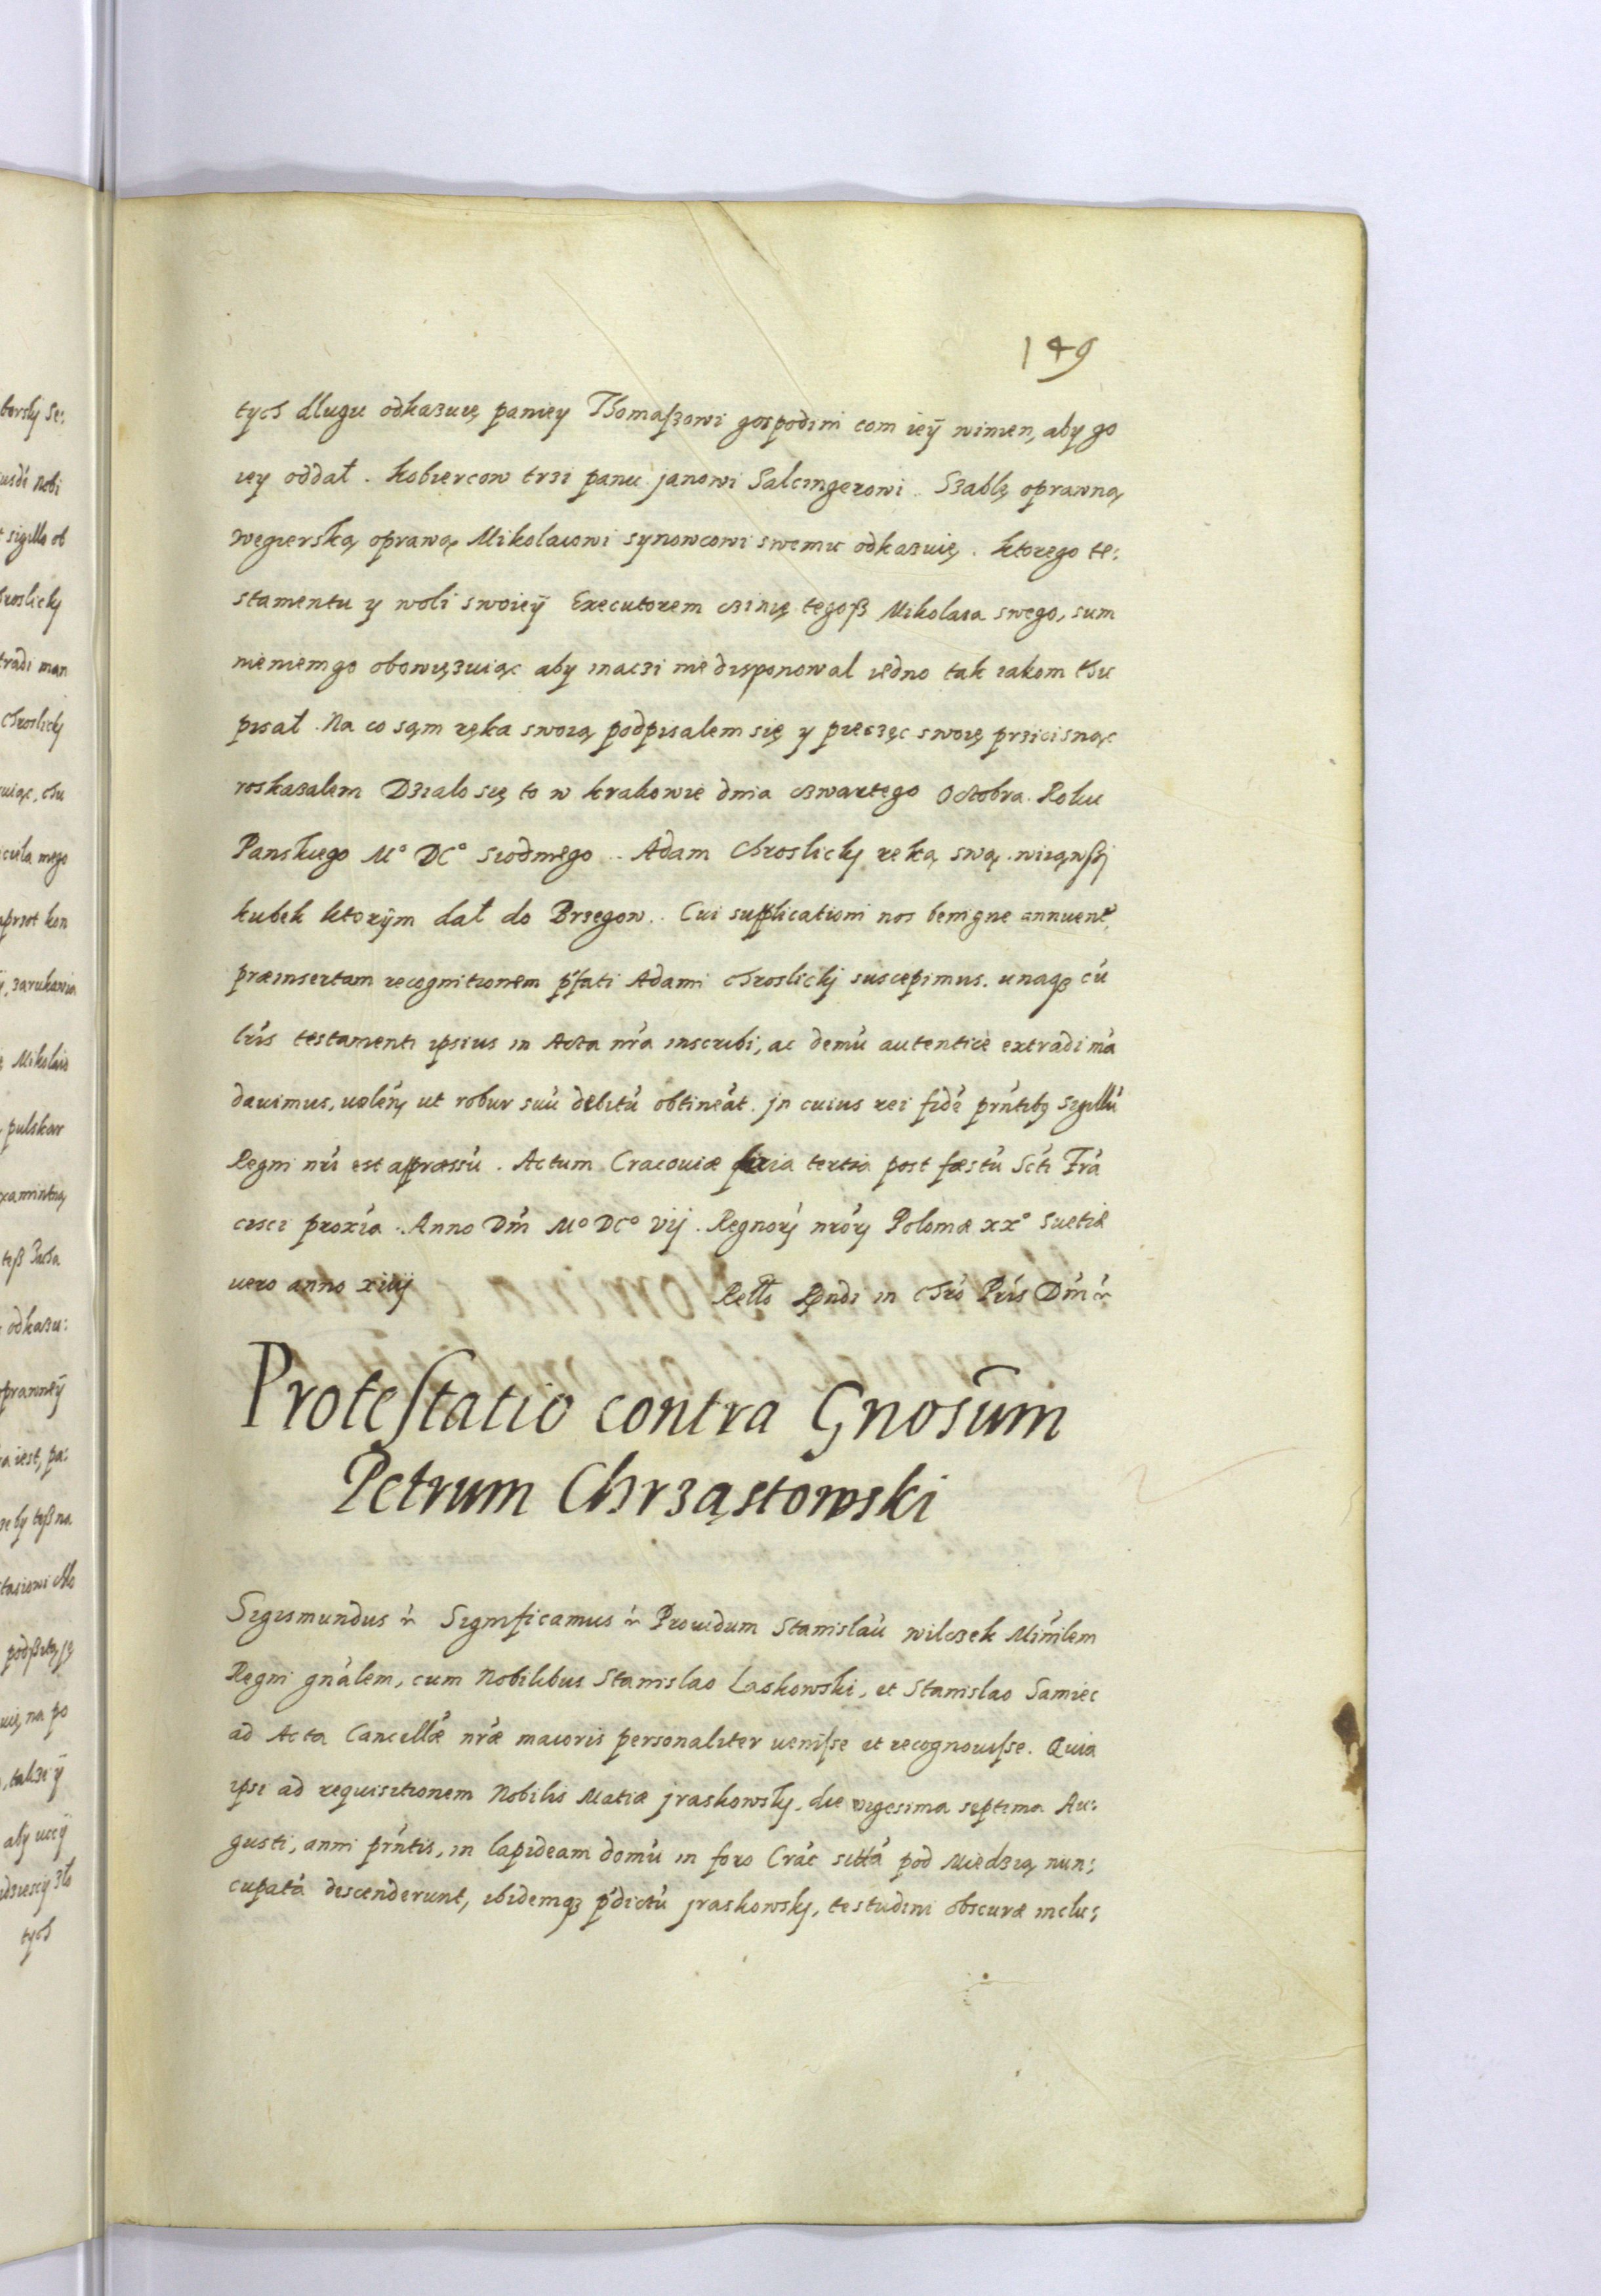 149
tych dlugu odkazuię paniey Thomaszowi gospodini com ieÿ winien, aby go
iey oddał. Kobiercow trzi panu janowi Salcingerowi. Szablę oprawną
Wegierską oprawą Mikolaiowi synowcowi swemu odkazuię. ktorego te:
stamentu y woli swoieÿ Executorem czinię tegoß Mikolaia swego, sum
nieniem go obowięzuiąc aby inaczi nie disponowal iedno tak iakom thu
pisał. Na co sąm ręka swoią podpisalem się y pieczęc swoię przicisnąc
roskazalem Dzialo się to w krakowie dnia czwartego Octobra. Roku
Panskiego M° DC° siodmego.. Adam Chroslicky reką swą. wiąwßj
kubek ktorÿm dał do Brzegow.. Cui supplicationi nos benigne annuent,
præinsertam recognitionem p'fati Adami Chroslickj suscepimus. unaqʒ cú
lris testamenti ipsius in Acta nrá inscribi, ac demú autenticè extradi má
dauimus, uolén, ut robur suú debitú obtineát. jn cuius rei fidé prńtibq Sigillú
Regni nrí est appræssú. Actum Cracouiæ feria tertia post fæstú Scti Frá
cisci proxía. Anno Dńi M° DC° vij. Regnorj nrórj Poloniæ xx° Suetiæ
uero anno xiiij
Rello Rndi in Chrō Pris Dńi ń
Protestatio contra Gnosum
Petrum Chrząstowski
Sigismundus ń Significamus ń Prouidum Stanislaú wilczek Minílem
Regni gnálem, cum Nobilibus Stanislao Laskowski, et Stanislao Samiec
ad Acta Cancellǽ nrǽ maioris personaliter uenisse et recognouisse. Quia
ipsi ad requisitionem Nobilis Matiæ jraskowsky, die vigesima septima Au:
gusti, anni prńtis, in lapideam domú in foro Crác sittá pod Miedzią nun:
cupatá descenderunt, ibidemqʒ p'dictú jraskowskj, testudini obscuræ inclu: